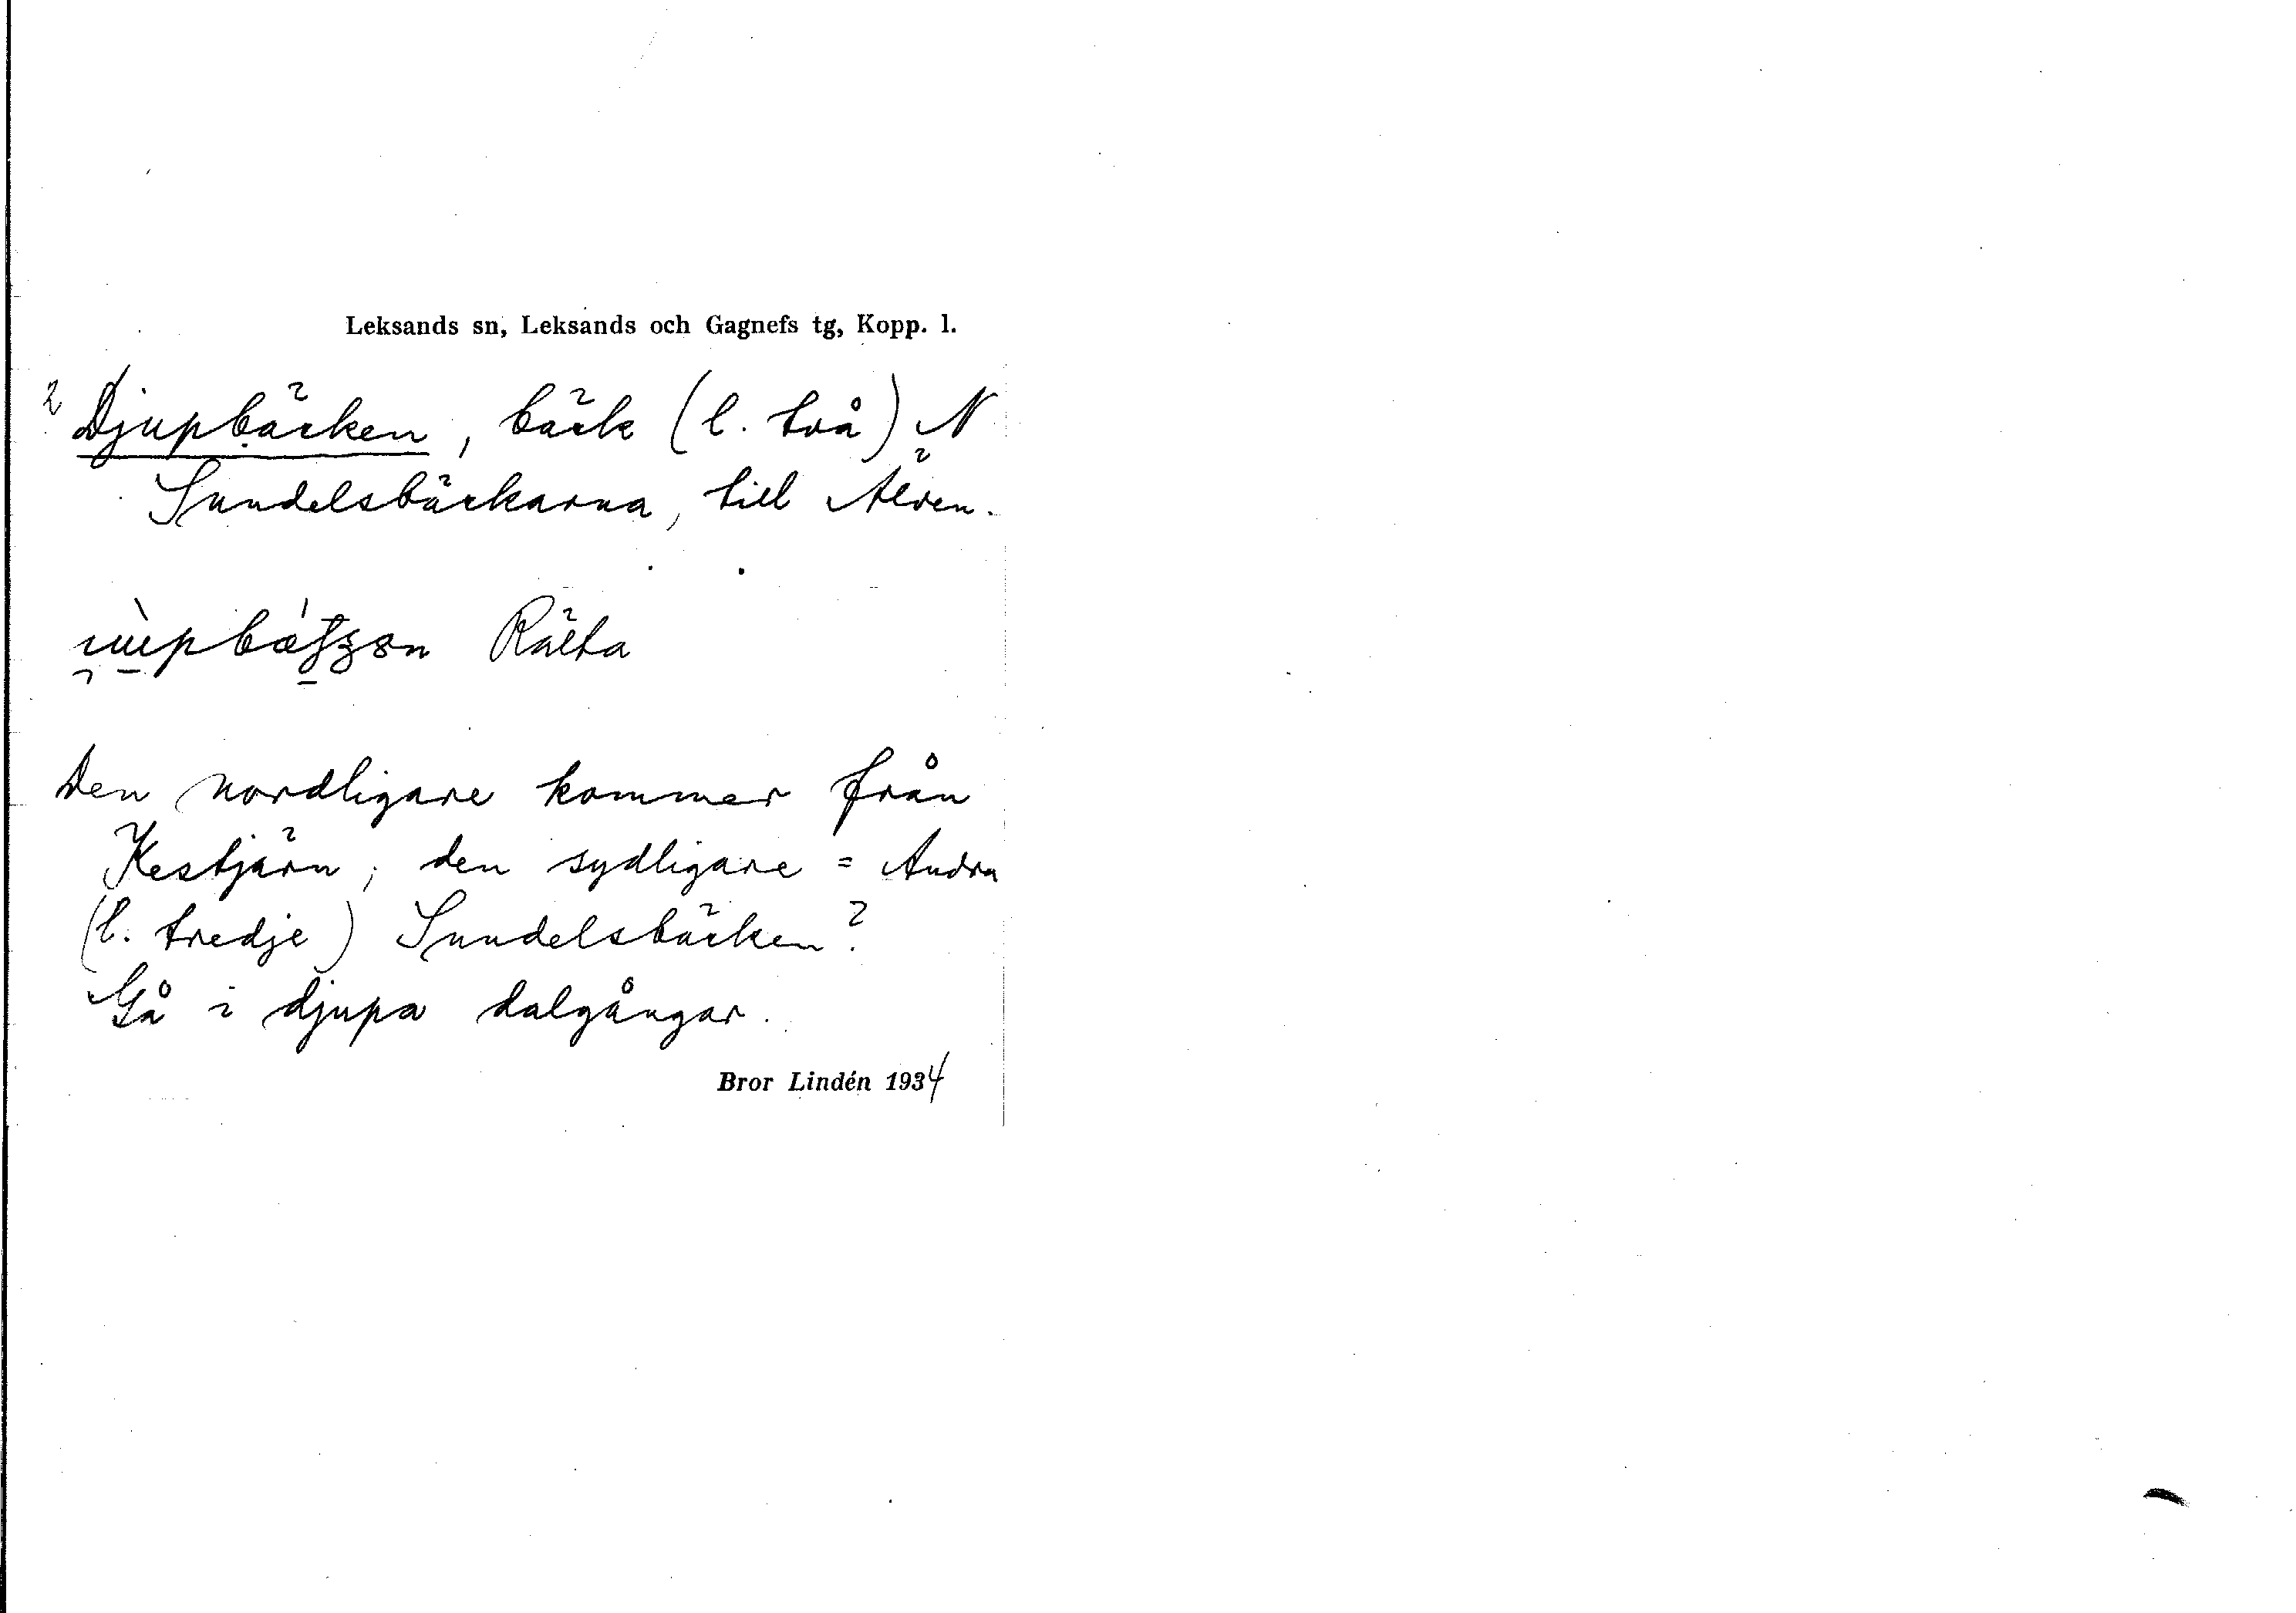 Leksands sn, Leksands och Gagnefs tg, Kopp. l.
2 Djupbäcken, bäck (l. två) N
Sundelsbäckarna, till Älven.
Rälta
Den nordligare kommer från
Kestjärn; den sydligare = Andra
(l. tredje) Sundelsbäcken?
Gå i djupa dalgångar.
Bror Lindén 1934